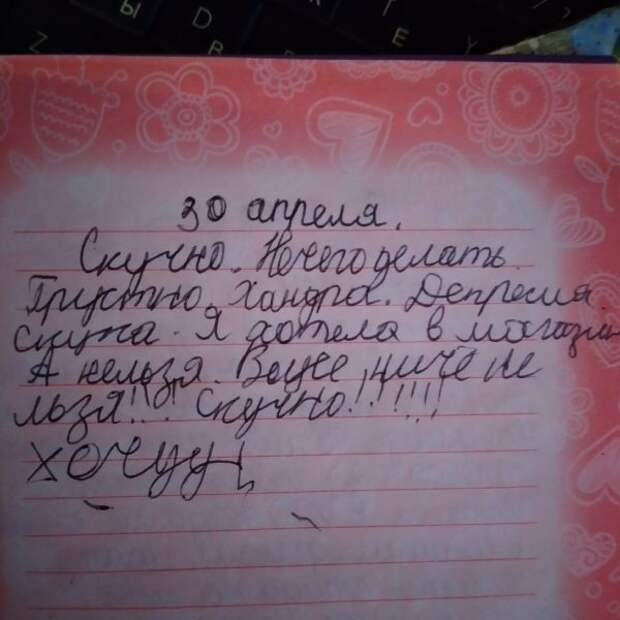 Ы
D
Z
B
Г
K
E
Y
30 апреля.
Скучно. Нечего делать.
Грустно. Хандра. Депресия.
скука. Я хотела в магазин
А нельзя. Воще ниче не
льзя!!! Скучно!!!!!!!
хочууу